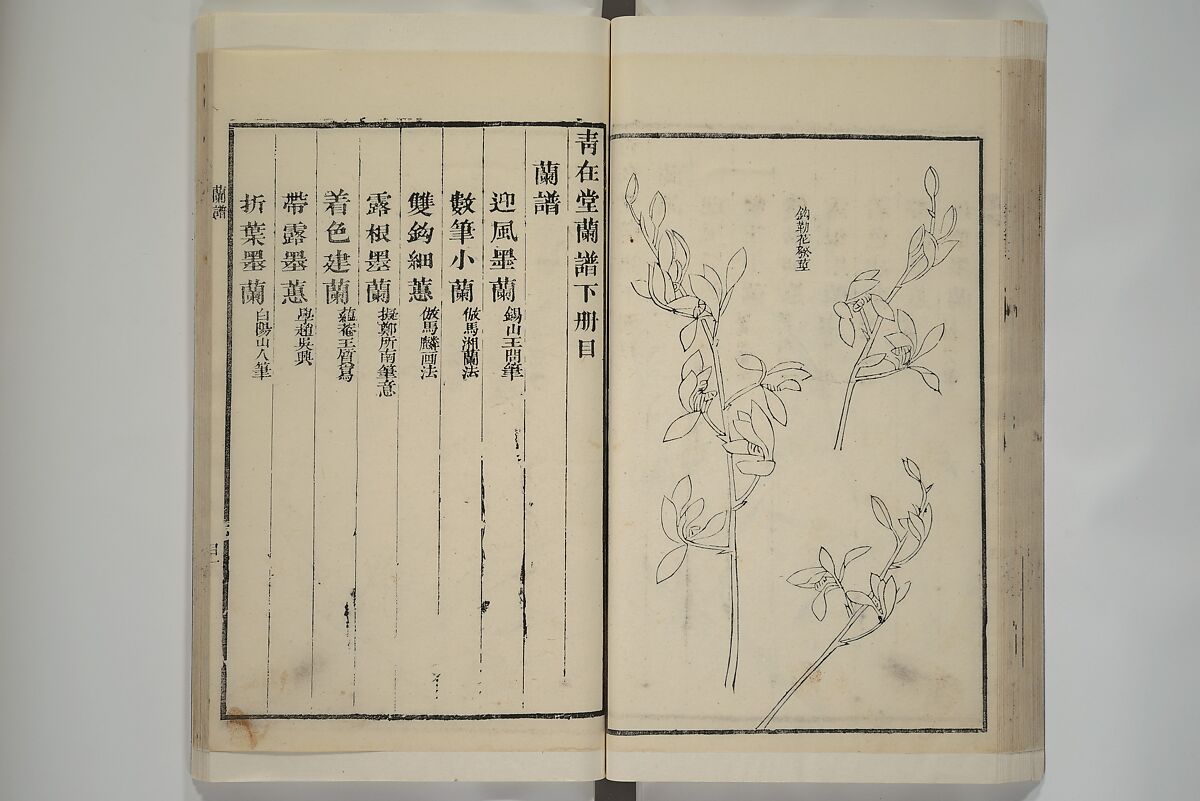 鈎勒花發莖
青在堂蘭譜下册目
蘭譜
迎風墨蘭 錫山王問筆
數筆小蘭 倣馬湘蘭法
雙鈎細蕙 倣馬麟画法
露根墨蘭 擬鄭所南筆意
着色建蘭 蘊菴王質寫
帶露墨蕙 學趙吳興
折葉墨蘭 白陽山人筆
蘭譜
目一